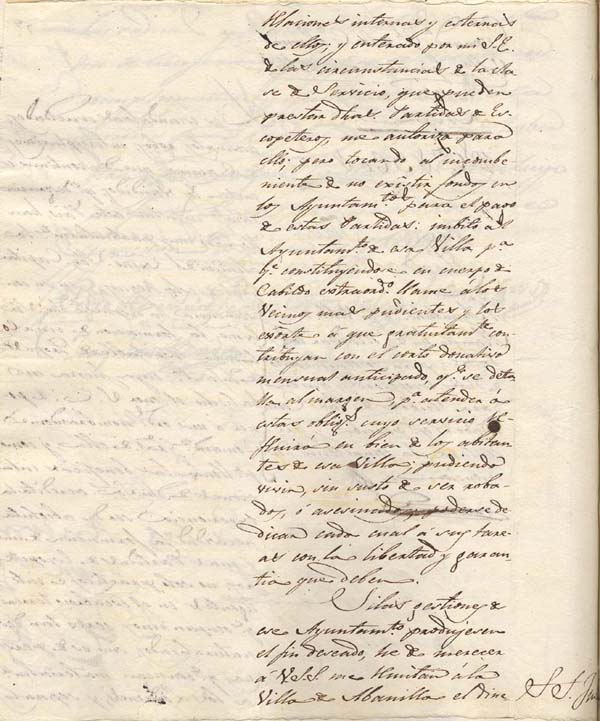 Relaciones internas y esternas
de ello; y enterado por mi S.E.
de las circunstancias de la cla
se de Servicio, que pueden
prestar dhas. Partidas de Es
copeteros, me autoriza para
ello; pero tocando al inconbe
niente de no existir fondos en
los Ayuntam.tos para el pago
de estas Partidas: imbito al
Ayuntam.to de esa Villa p.a
q.e constituyendose en cuerpo de
Cabildo extraord.o llame á los
Vecinos mas pudientes y los
exorte á que gratuitam.te con
tribuyan con el corto donatibo
mensual anticipado, q.e se deta
lla al margen p.a atender á
estas oblig.s cuyo servicio re
fluirá en bien de los abitan
tes de esa Villa, pudiendo
vivir, sin susto de ser roba
dos, ó asesinados y poderse de
dicar cada cual á sus tare
as con la libertad y garan
tia que deben.
Si las gestiones de
ese Ayuntam.to produjesen
el fin deseado, he de merecer
á V.S.S. me remitan á la
Villa de Abanilla el dine
S. S. Ju